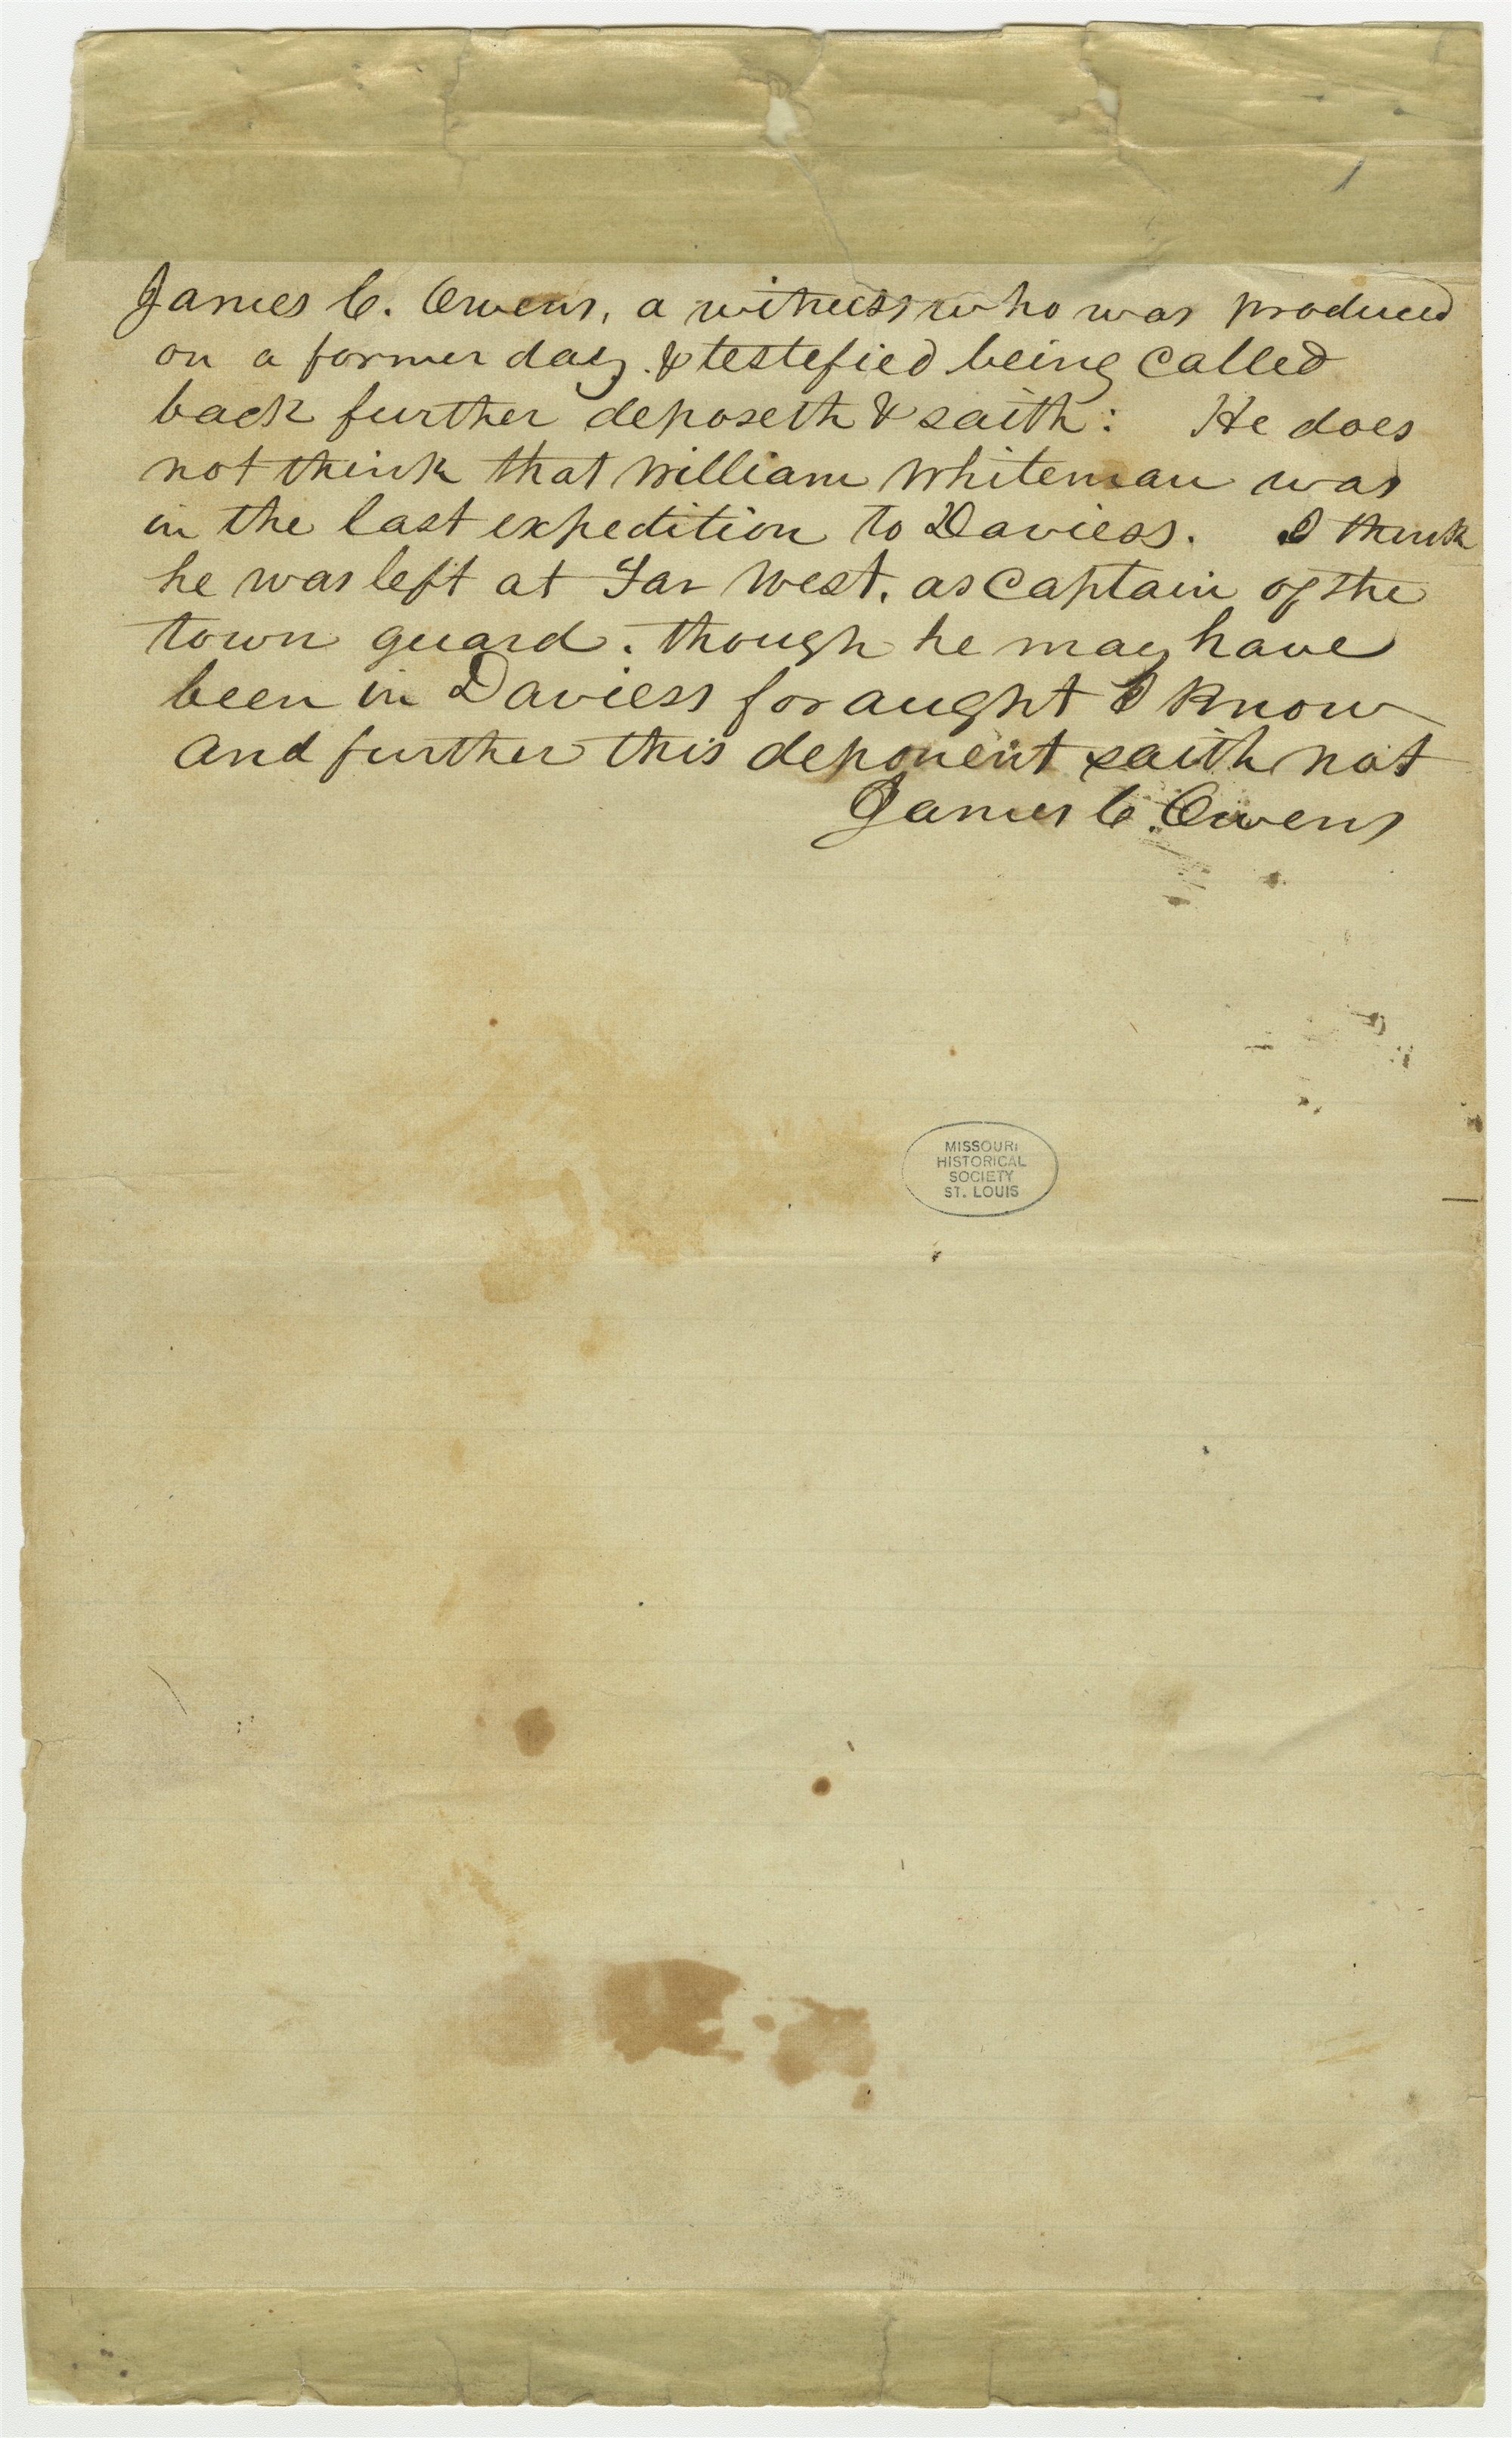 James C. Owens, a witness who was produced
on a former day. & testefied being called
back further deposeth & saith: He does
not think that William Whiteman was
in the last expedition to Daviess. I think
he was left at Far West, as Captain of the
town guard. though he may have
been in Daviess for aught I know
and further this deponent saith not
James C. Owens
MISSOURI
HISTORICAL
SOCIETY
ST. LOUIS